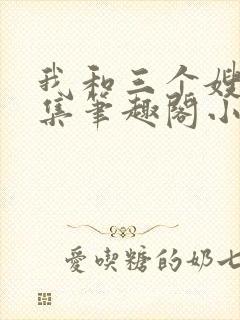 我和三个嫂
集笔趣阁小
爱吃糖的奶七